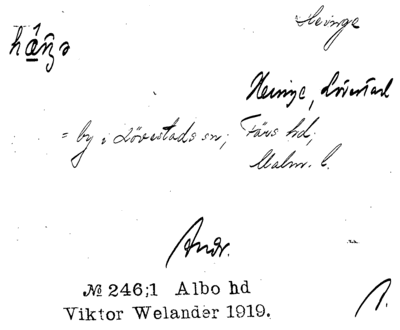 Heinge
Heinge, Lövestad
= by i Lövestads sn, Färs hd,
Malm. l.
Andr.
№ 246;1 Albo hd
Viktor Welander 1919.